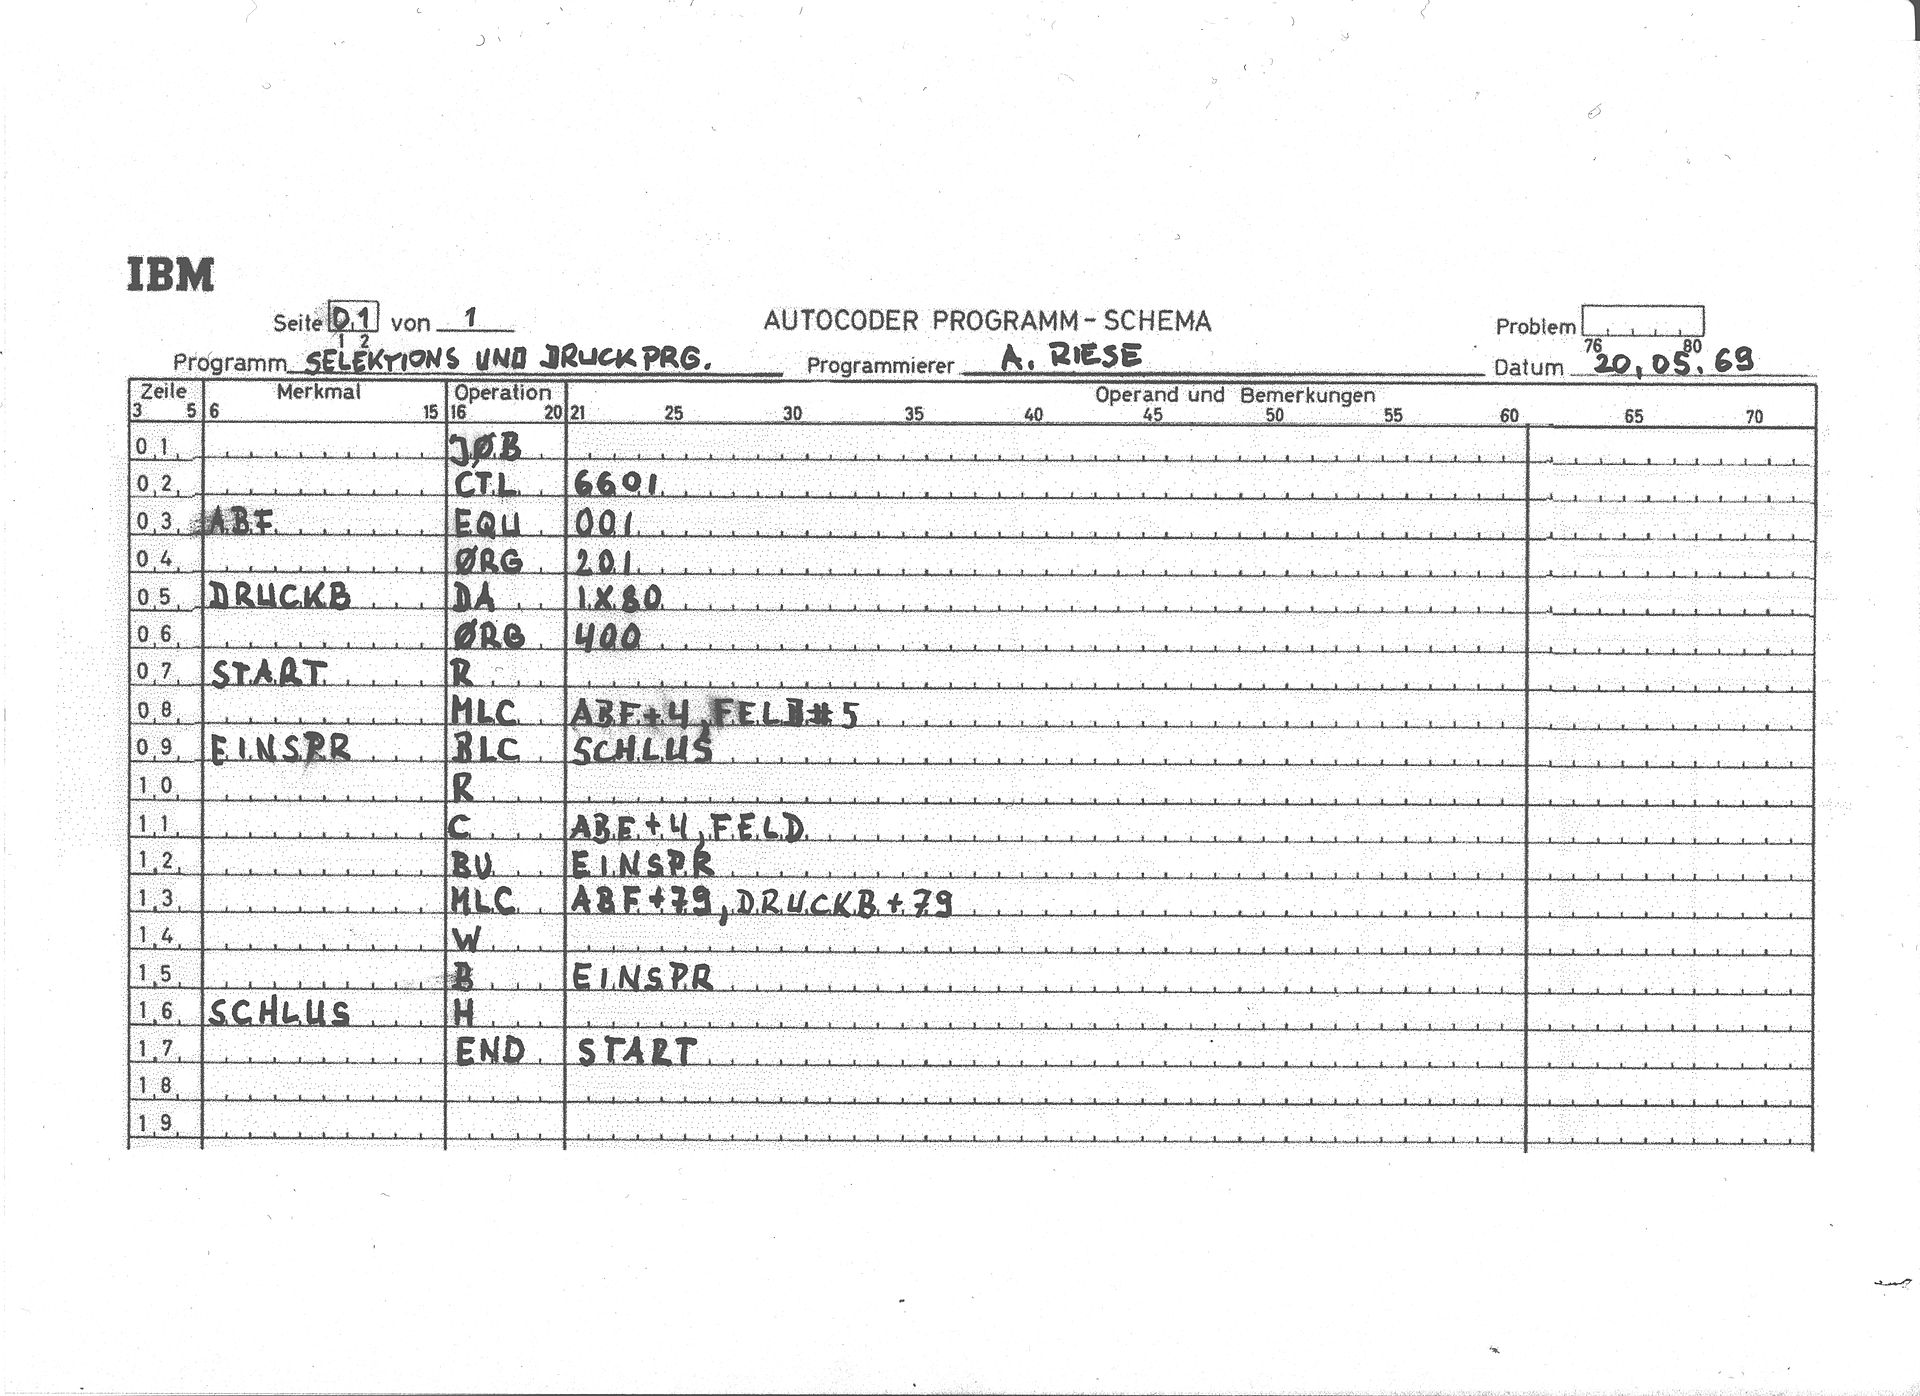 IBM
Seite 01 von 1 AUTOCODER PROGRAMM-SCHEMA Problem
1 2 76 80
Programm SELEKTIONS UND DRUCKPRG. Programmierer A. RIESE Datum 20.05.69
Zeile Merkmal Operation Operand und Bemerkungen
3 5 6 15 16 20 21 25 30 35 40 45 50 55 60 65 70
01 JØB
02 CTL 6601
03 ABF EQU 001
04 ØRG 201
05 DRUCKB DA 1X80
06 ØRG 400
07 START R
08 MLC ABF+4,FELD#5
09 EINSPR BLC SCHLUS
10 R
11 C ABF+4,FELD
12 BU EINSPR
13 MLC ABF+79,DRUCKB+79
14 W
15 B EINSPR
16 SCHLUS H
17 END START
18
19